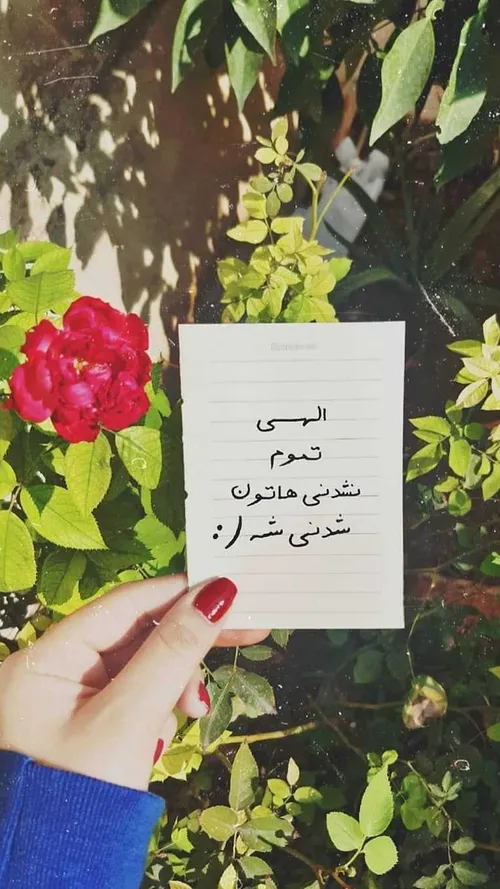 الهـی
تموم
نشدنی هاتون
شدنی شه (: